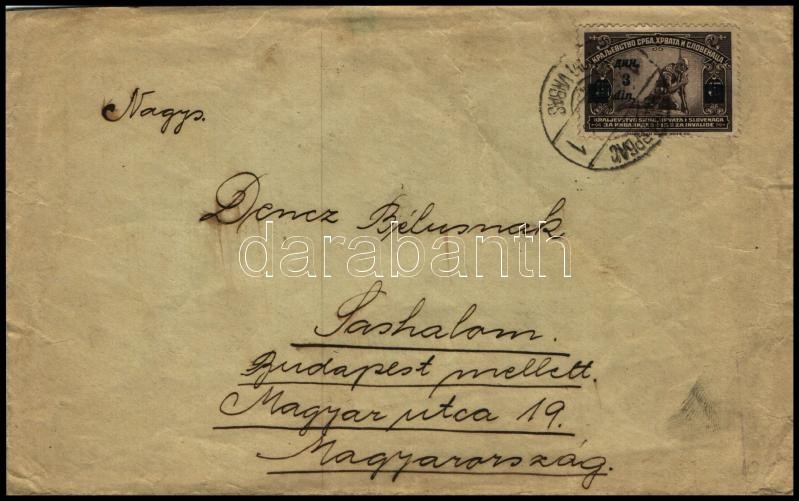 КРАЉЕВСТВО СРБА, ХРВАТА И СЛОВЕНАЦА
дин.
3
din.
KRALJEVSTVO SRBA, HRVATA I SLOVENACA
ЗА ИНВАЛИДЕ ZA INVALIDE
VRBAS
1
ВРБАС
Nagys.
Dencz Bélusnak
darabanth
Sashalom.
Budapest mellett.
Magyar utca 19.
Magyarország.